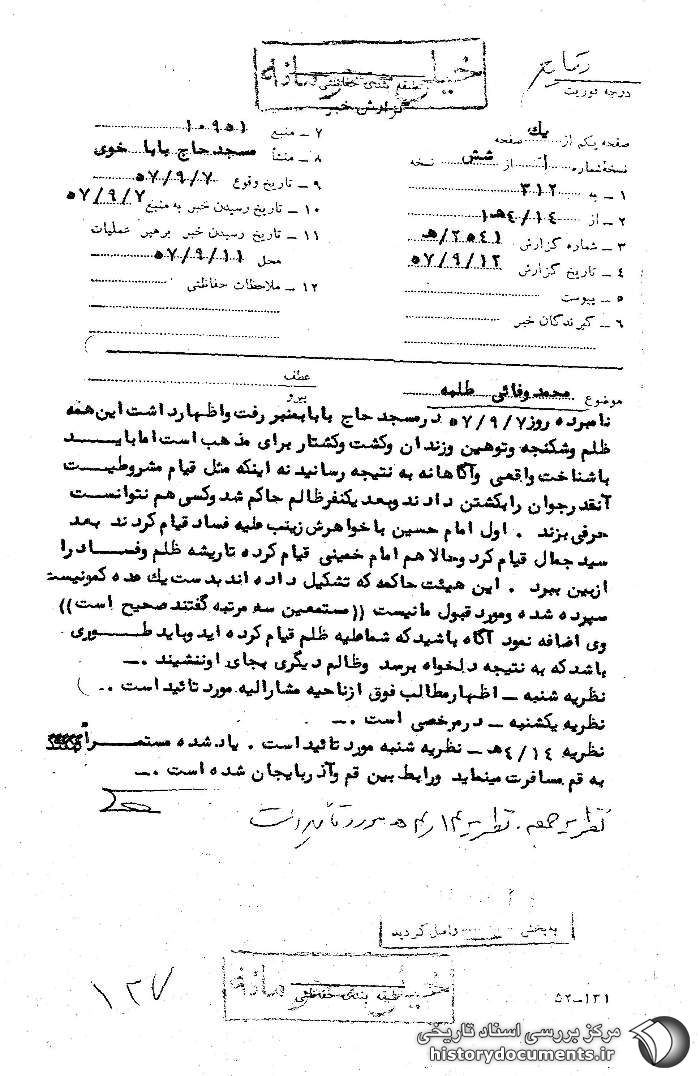 خیلی محرمانه
طبقه بندی حفاظتی
گزارش خبر
درجه فوریت
صفحه یکم از یك صفحه
نسخه شماره ۱ از شش نسخه
۱ ـ به ۳۱۲
۲ ـ از ۴/۱۴هـ۱
۳ ـ شماره گزارش ۲۵۴۱/هـ
۴ ـ تاریخ گزارش ۵۷/۹/۱۲
۵ ـ پیوست
۶ ـ گیرندگان خبر
۷ ـ منبع ۱۰۹۵۱
۸ ـ منشأ مسجد حاج بابا خوی
۹ ـ تاریخ وقوع ۵۷/۹/۷
۱۰ ـ تاریخ رسیدن خبر به منبع ۵۷/۹/۷
۱۱ ـ تاریخ رسیدن خبر برهبر عملیات
محل ۵۷/۹/۱۱
۱۲ ـ ملاحظات حفاظتی
موضوع محمد وفائی طلبه
عطف
پیرو
نامبرده روز ۵۷/۹/۷ در مسجد حاج بابا بمنبر رفت و اظهار داشت این همه
ظلم و شکنجه و توهین و زندان و کشت و کشتار برای مذهب است اما باید
با شناخت واقعی و آگاهانه به نتیجه رسانید نه اینکه مثل قیام مشروطیت
آنقدر جوان را بکشتن دادند و بعد یکنفر ظالم حاکم شد و کسی هم نتوانست
حرفی بزند . اول امام حسین با خواهرش زینب علیه فساد قیام کردند بعد
سید جمال قیام کرد و حالا هم امام خمینی قیام کرده تا ریشه ظلم و فساد را
از بین ببرد . این هیئت حاکمه که تشکیل داده اند بدست یك عده کمونیست
سپرده شده و مورد قبول ما نیست ((مستمعین سه مرتبه گفتند صحیح است))
وی اضافه نمود آگاه باشید که شما علیه ظلم قیام کرده اید و باید طوری
باشد که به نتیجه دلخواه برسد و ظالم دیگری بجای او ننشیند .ـ
نظریه شنبه ـ اظهار مطالب فوق از ناحیه مشارالیه مورد تائید است .ـ
نظریه یکشنبه ـ در مرخصی است .ـ
نظریه ۴/۱۴هـ ـ نظریه شنبه مورد تائید است . یاد شده مستمراً
به قم مسافرت مینماید و رابط بین قم و آذربایجان شده است .ـ
نظریه جمعه . نظریه ۴/۱۴هـ مورد تأیید است
به بخش واصل گردید
خیلی محرمانه
طبقه بندی حفاظتی
۱۲۷
۵۲-۱۳۱
مرکز بررسی اسناد تاریخی
historydocuments.ir